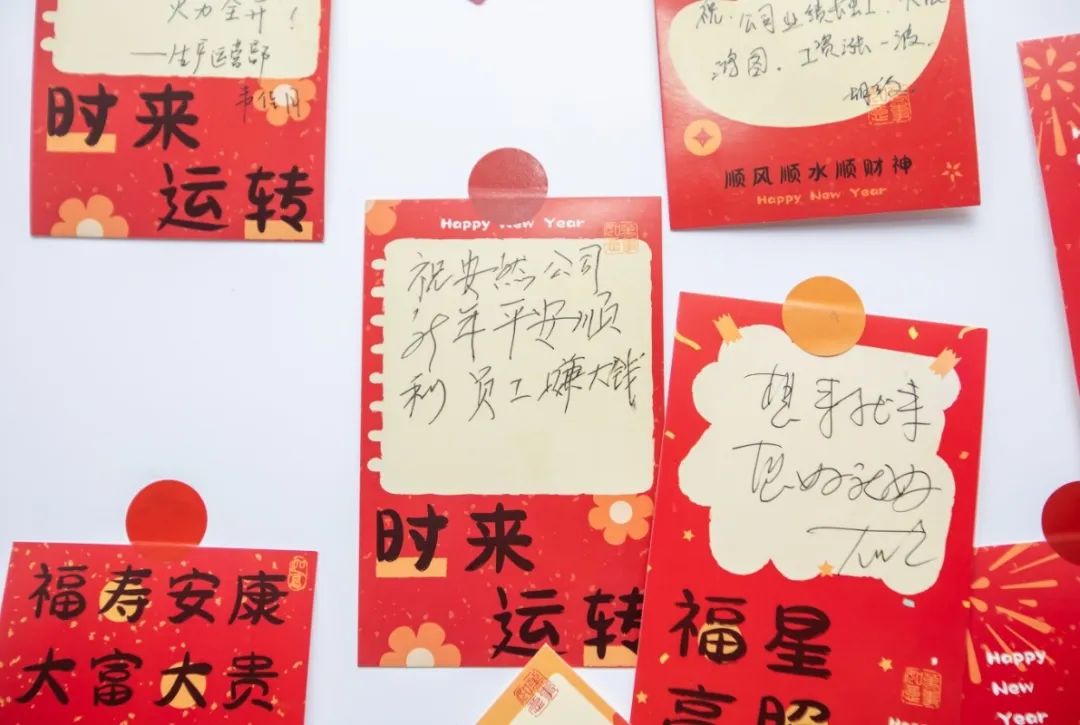 火力全开！
——生产运营部
时来
运转
祝公司业绩长虹、大展
鸿图，工资涨一波。
顺风顺水顺财神
Happy New Year
Happy New Year
祝安然公司
新年平安顺
利 员工赚大钱
时来
运转
想来就来
想好就好
福星
高照
福寿安康
大富大贵
Happy
New
Year